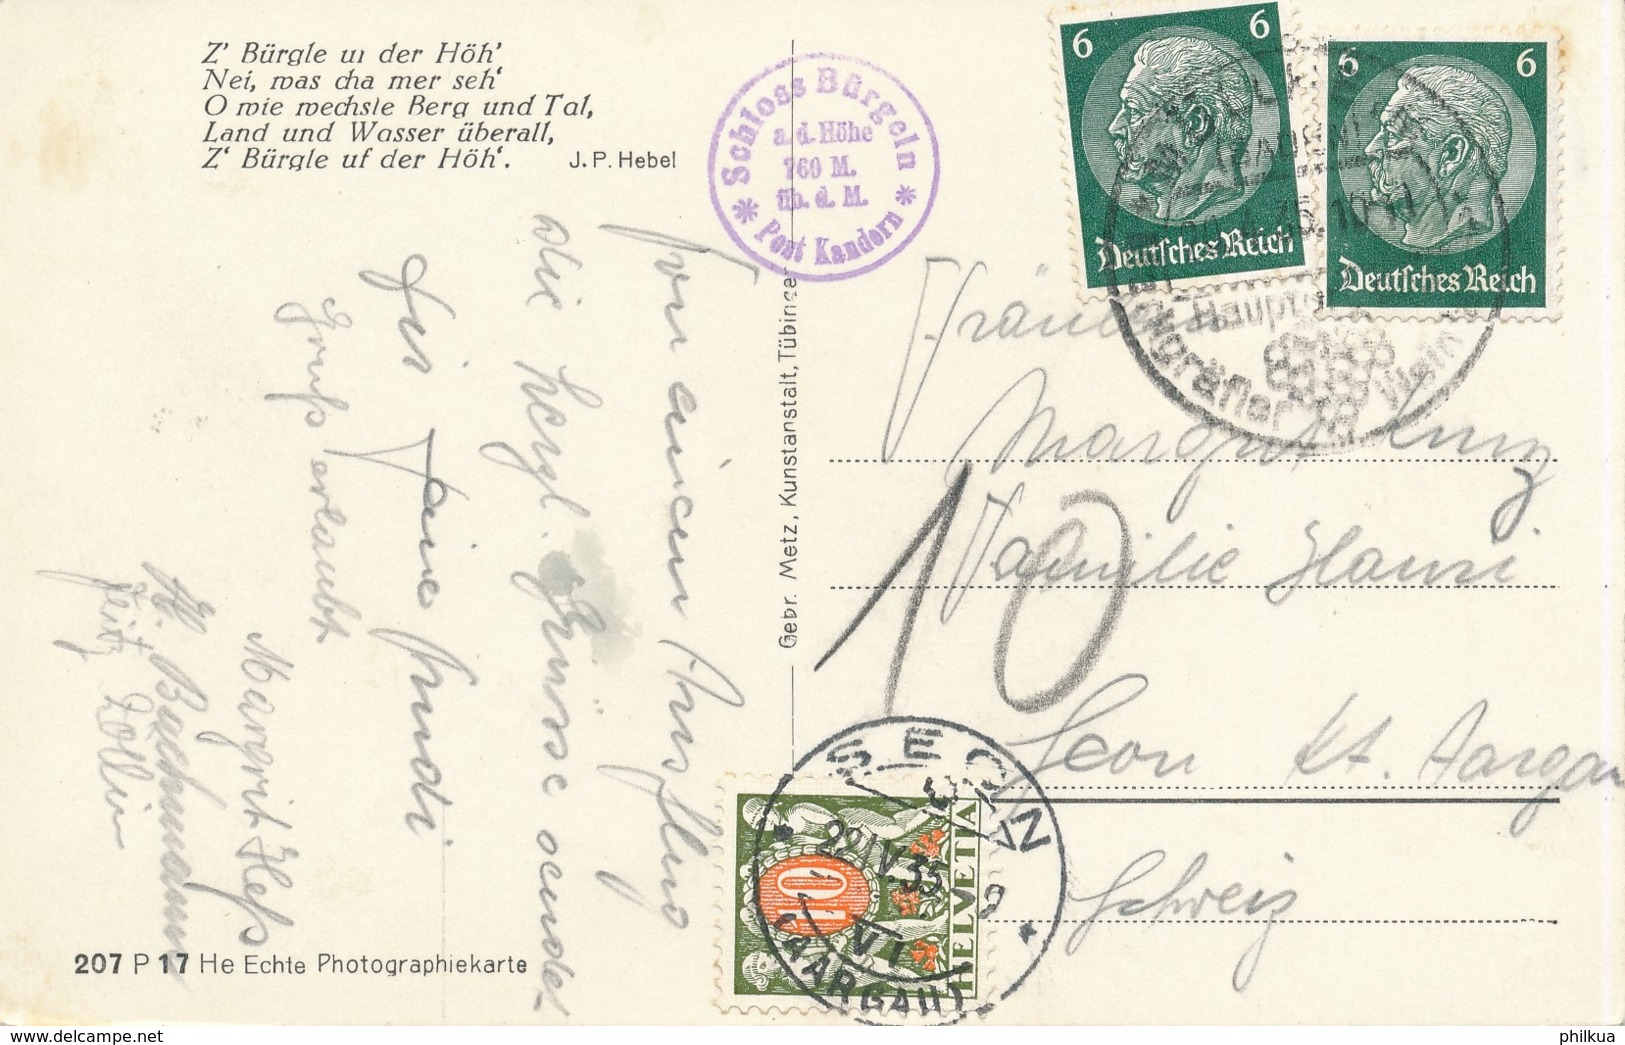 Z' Bürgle uf der Höh'
Nei, was cha mer seh'
O wie wechsle Berg und Tal,
Land und Wasser überall,
Z' Bürgle uf der Höh'.
J. P. Hebel
Schloss Bürgeln
a. d. Höhe
760 M.
üb. d. M.
* Post Kandern *
6 6
Deutsches Reich
6 6
Deutsches Reich
Markgräfler Wein
Fräulein
Margrit Kunz
Familie Hauri
Seon Kt. Aargau
Schweiz
10
Von einem Ausflug
die herzl. Grüsse sendet
Dir
Gruss erlaubt
Margrit Hess
H. Bachmann
Gebr. Metz, Kunstanstalt, Tübingen
SEON
22.IV.35
VI
(AARGAU)
10
HELVETIA
207 P 17 He Echte Photographiekarte
philkua